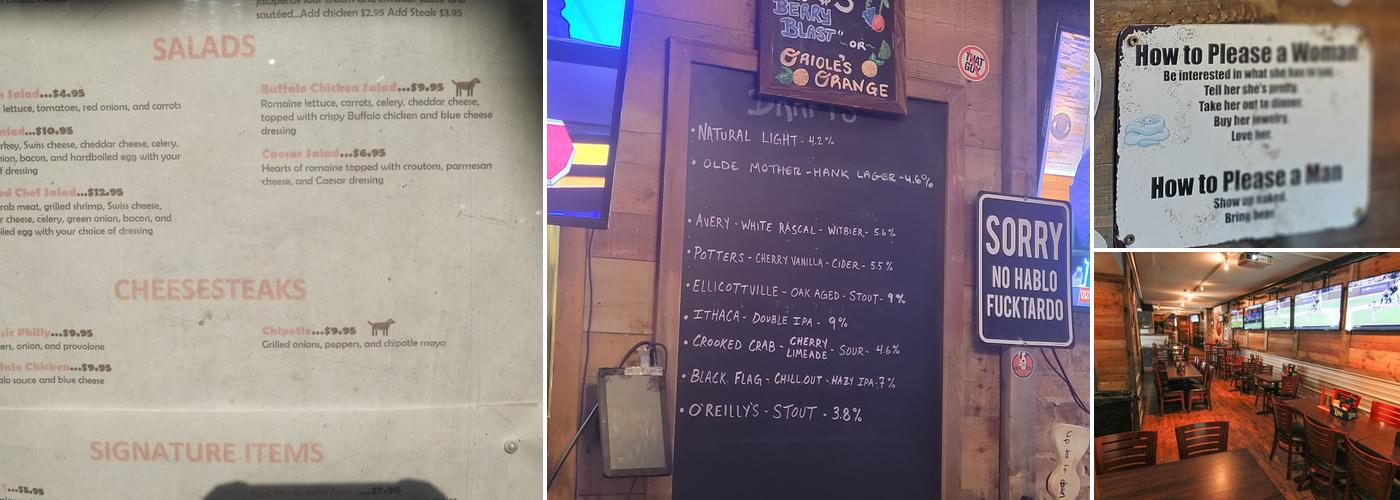 sautéed...Add chicken $2.95 Add Steak $3.95
SALADS
Salad...$4.95
lettuce, tomatoes, red onions, and carrots
$10.95
Swiss cheese, cheddar cheese, celery,
bacon, and hardboiled egg with your
dressing
Chef Salad...$12.95
meat, grilled shrimp, Swiss cheese,
cheese, celery, green onion, bacon, and
egg with your choice of dressing
Buffalo Chicken Salad...$9.95
Romaine lettuce, carrots, celery, cheddar cheese,
topped with crispy Buffalo chicken and blue cheese
dressing
Caesar Salad...$6.95
Hearts of romaine topped with croutons, parmesan
cheese, and Caesar dressing
CHEESESTEAKS
Philly...$9.95
onion, and provolone
Chicken...$9.95
sauce and blue cheese
Chipotle...$9.95
Grilled onions, peppers, and chipotle mayo
SIGNATURE ITEMS
$5.95
$7.95
BERRY
BLAST"
-OR-
ORIOLE'S
ORANGE
DRAFTS
• NATURAL LIGHT - 4.2%
• OLDE MOTHER - HANK LAGER - 4.6%
• AVERY - WHITE RASCAL - WITBIER - 5.6%
• POTTERS - CHERRY VANILLA - CIDER - 5.5%
• ELLICOTTVILLE - OAK AGED - STOUT - 9%
• ITHACA - DOUBLE IPA - 9%
• CROOKED CRAB - CHERRY LIMEADE - SOUR - 4.6%
• BLACK FLAG - CHILL OUT - HAZY IPA - 7%
• O'REILLY'S - STOUT - 3.8%
THAT GUY
SORRY
NO HABLO
FUCKTARDO
How to Please a Woman
Be interested in what she has to say.
Tell her she's pretty.
Take her out to dinner.
Buy her jewelry.
Love her.
How to Please a Man
Show up naked.
Bring beer.